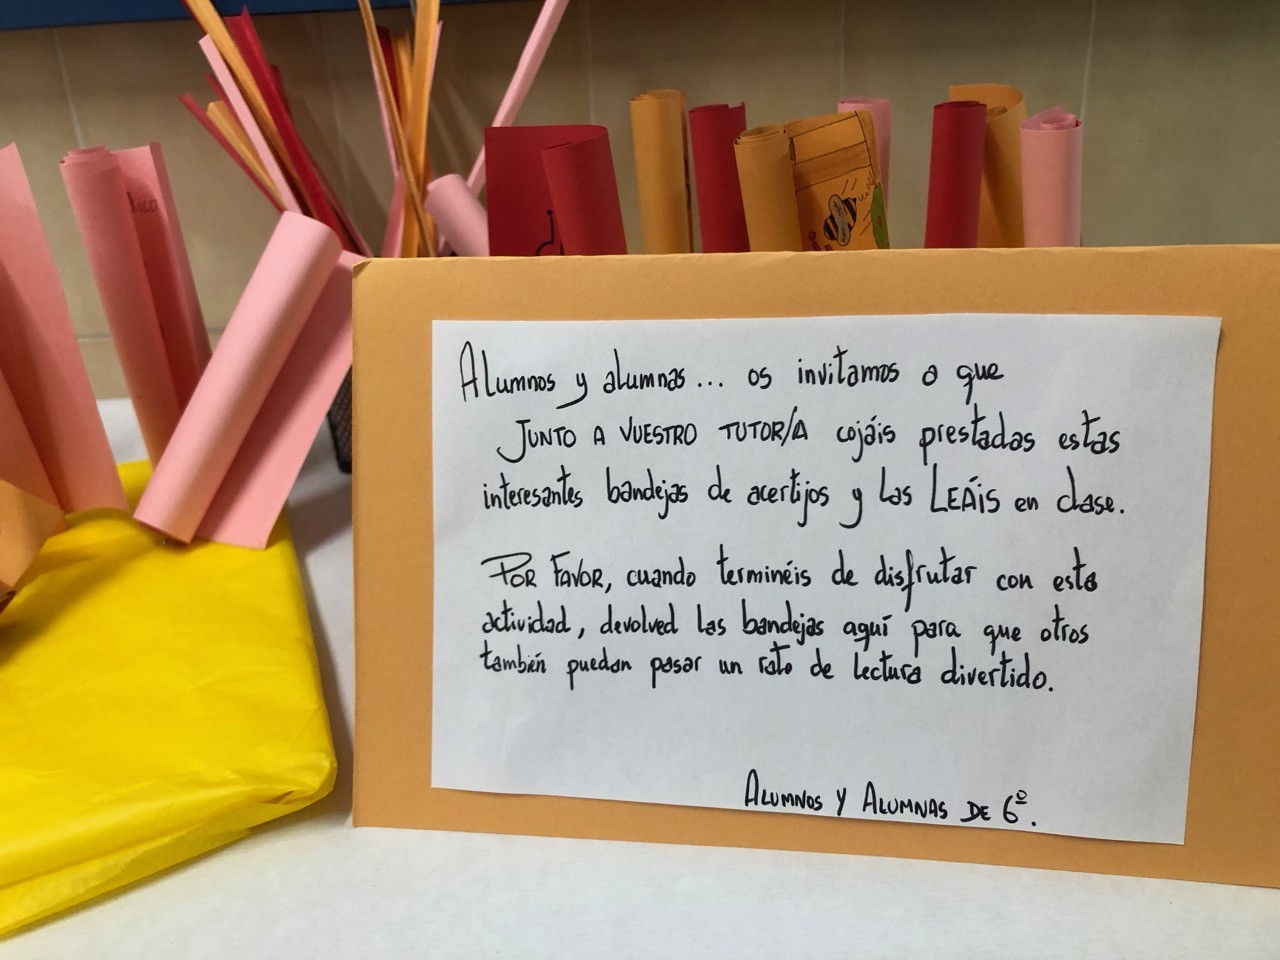 Alumnos y alumnas... os invitamos a que
JUNTO A VUESTRO TUTOR/A cojáis prestadas estas
interesantes bandejas de acertijos y las LEÁIS en clase.
POR FAVOR, cuando terminéis de disfrutar con esta
actividad, devolved las bandejas aquí para que otros
también puedan pasar un rato de lectura divertido.
ALUMNOS Y ALUMNAS DE 6º.